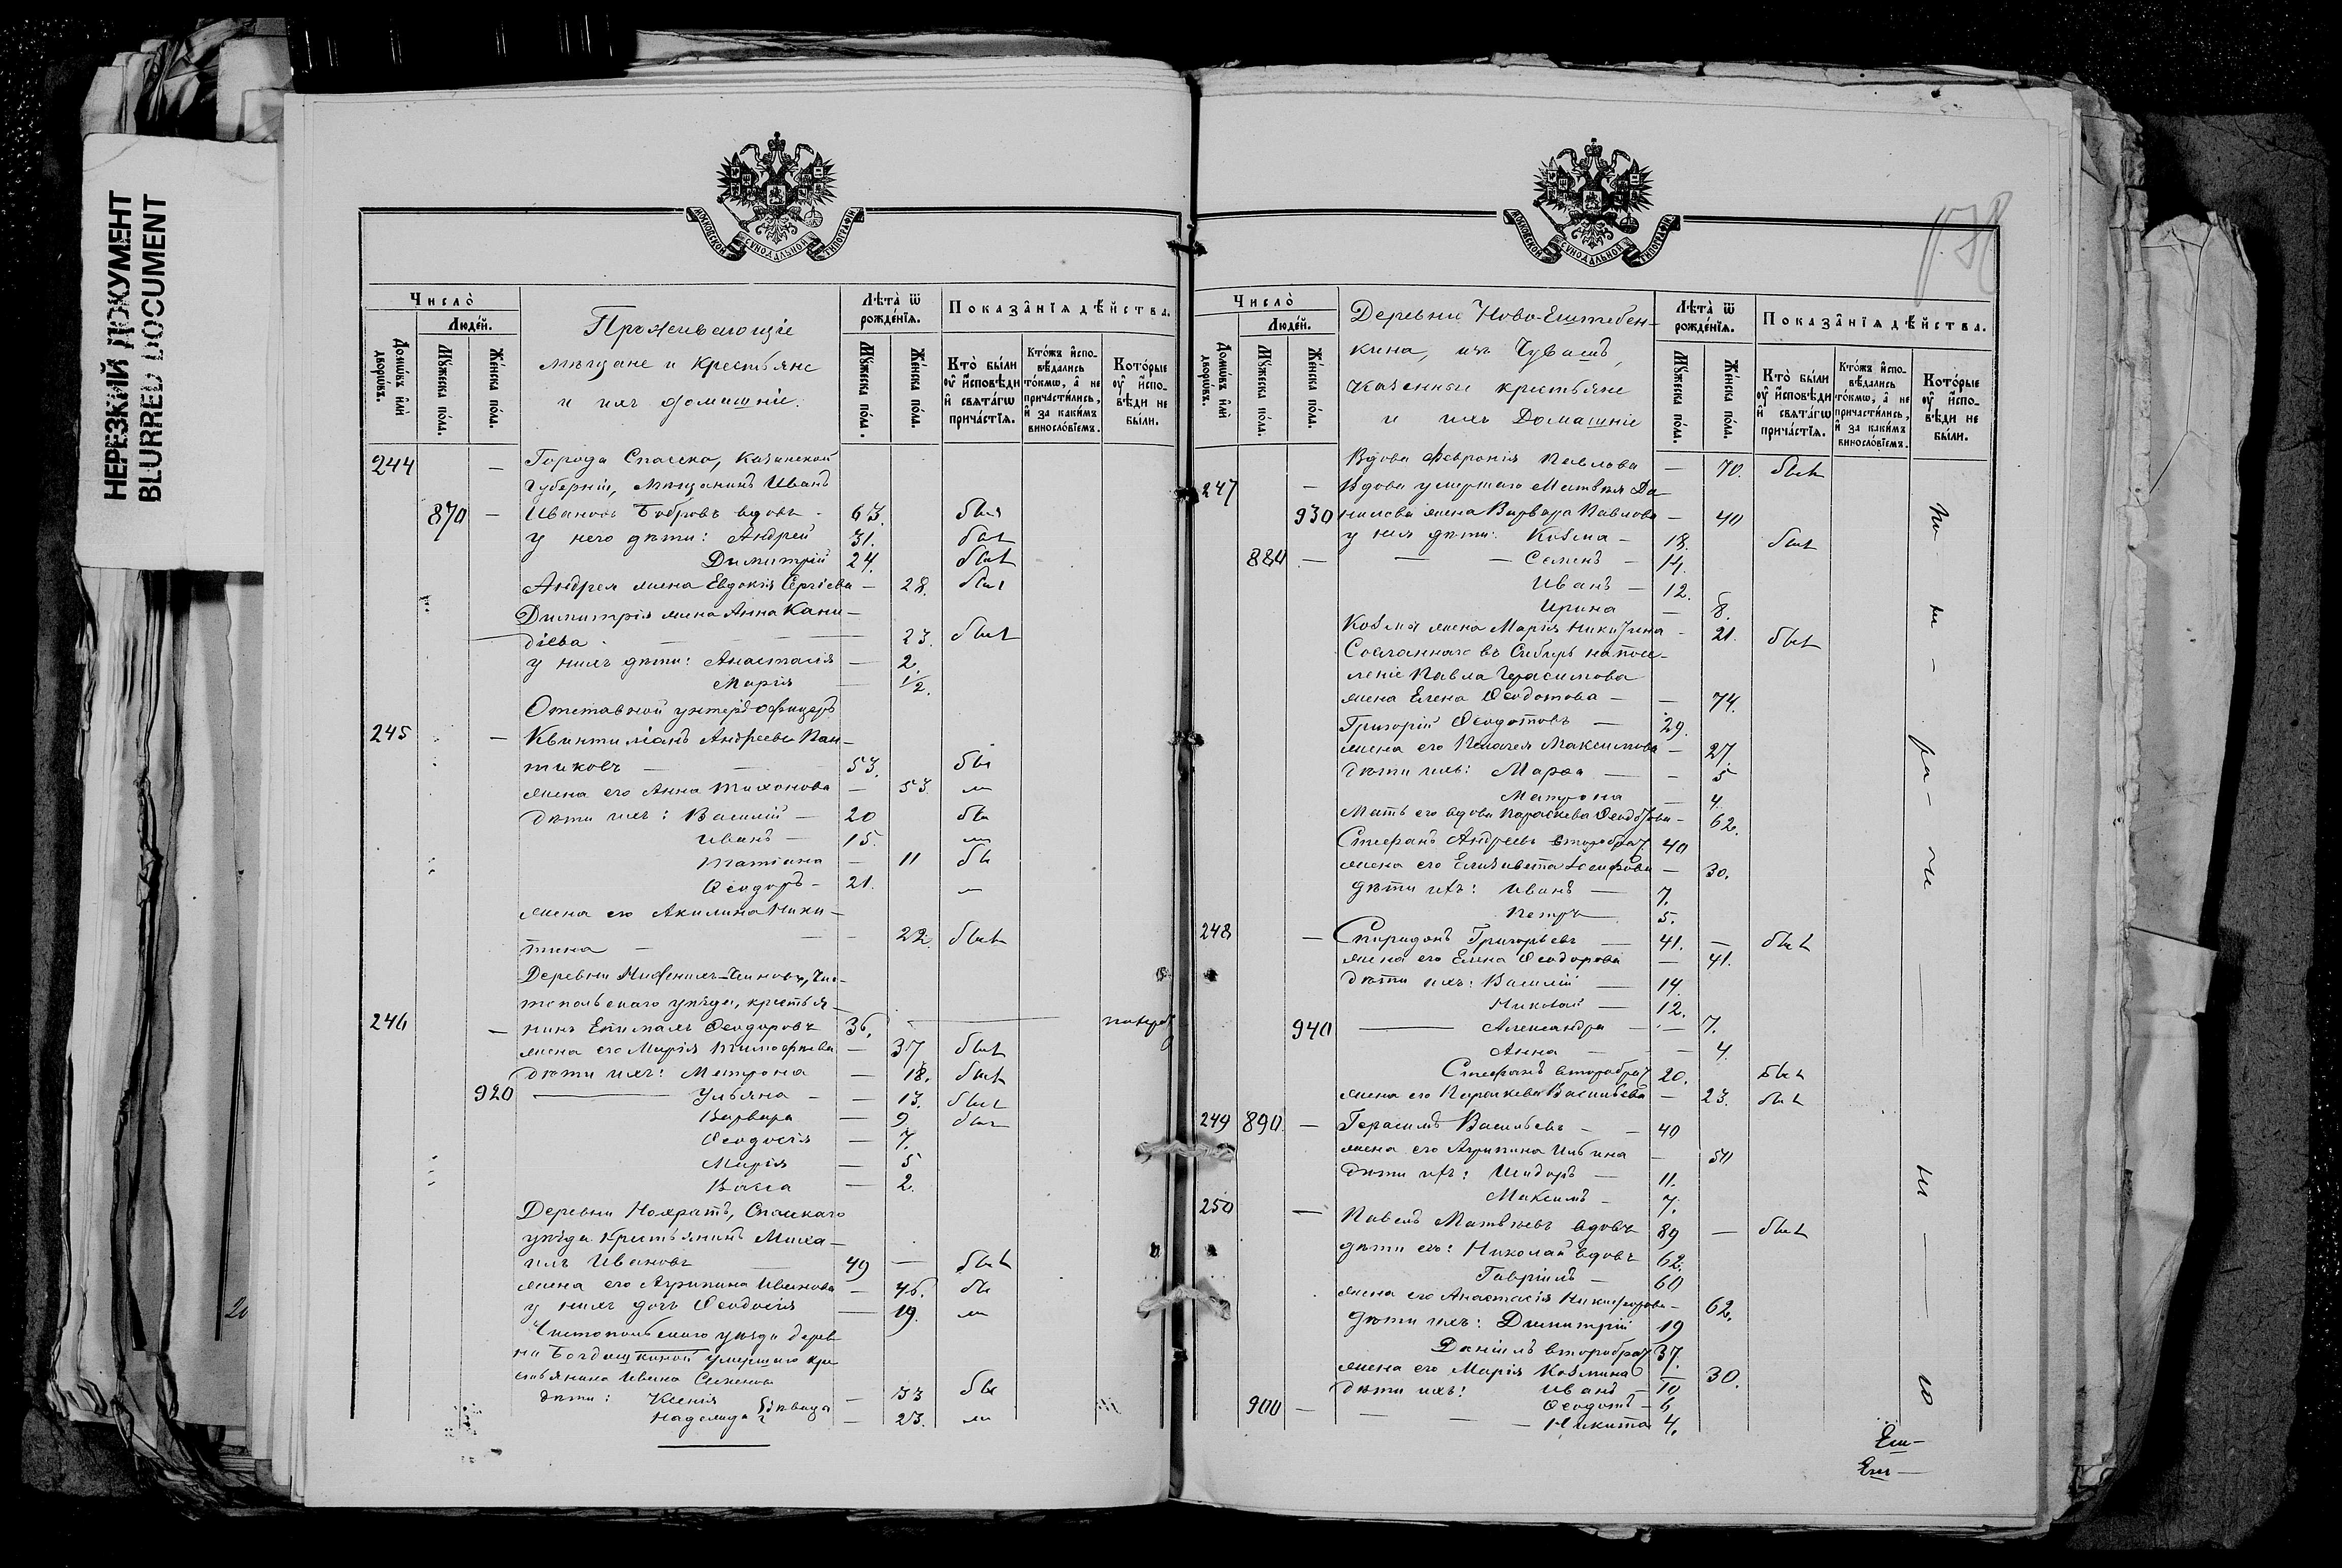 НЕРЕЗКИЙ ДОКУМЕНТ
BLURRED DOCUMENT
МОСКОВСКОЙ СѴНОДАЛЬНОЙ ТИПОГРАФІИ
Число̀
Люде́й.
Домо́въ и҆лѝ дворо́въ.
Мꙋ́жеска по́ла.
Же́нска по́ла.
Проживающіе
мѣщане и крестьяне
и ихъ домашніе.
Лѣта̀ ѿ рожде́нїѧ.
Мꙋ́жеска по́ла.
Же́нска по́ла.
Показа̑нїѧ дѣ́йства.
Кто̀ бы́ли ᲂу҆ и҆сповѣ́ди и҆ свѧта́гѡ прича́стїѧ.
Кто́жъ и҆сповѣ́дались то́кмѡ, а҆ не причасти́лись, и҆ за каки́мъ виносло́вїемъ.
Кото́рые ᲂу҆ и҆сповѣ́ди не бы́ли.
244 — Города Спасска, Казанской
губерніи, мѣщанинъ Иванъ
870 — Ивановъ Бобровъ вдовъ - 63. был
у него дѣти: Андрей 31. был
Димитрій 24. был
Андрея жена Евдокія Сергіева — 28. был
Димитрія жена Анна Капи-
діева 23. был
у нихъ дѣти: Анастасія — 2.
Марія — 1/2.
Отставной унтеръ-офицеръ
245 — Квинтиліанъ Андреевъ Пан-
тиковъ — 53. бы
жена его Анна Тихонова — 53. —
дѣти ихъ: Василій — 20 бы
Иванъ — 15. —
Татіана — 11 бы
Ѳеодоръ — 21. —
жена его Акилина Ники-
тина — 22. был
топольскаго уѣзда, крестья-
246 — нинъ Ѳеодоровъ 36.
жена его Марія Тимофѣева — 37 был
дѣти ихъ: Матрона — 18. был
920 — Ульяна — 13. был
Варвара — 9. был
Ѳеодосія — 7.
Марія — 5
Васса — 2.
Деревни Нохратъ, Спасскаго
уѣзда крестьянинъ Миха-
илъ Ивановъ 49 — был
жена его Агрипина Иванова — 46. бы
у нихъ дочь Ѳеодосія — 19. —
Чистопольскаго уѣзда дерев-
ни Богдашкиной умершаго кре-
стьянина Ивана Семенова
дѣти: Ксенія — 33 бы
Надежда дѣвица — 23. —
МОСКОВСКОЙ СѴНОДАЛЬНОЙ ТИПОГРАФІИ
Число̀
Люде́й.
Домо́въ и҆лѝ дворо́въ.
Мꙋ́жеска по́ла.
Же́нска по́ла.
Деревни Ново-Ештебен-
кина, изъ Чувашъ,
казенные крестьяне
и ихъ Домашніе
Лѣта̀ ѿ рожде́нїѧ.
Мꙋ́жеска по́ла.
Же́нска по́ла.
Показа̑нїѧ дѣ́йства.
Кто̀ бы́ли ᲂу҆ и҆сповѣ́ди и҆ свѧта́гѡ прича́стїѧ.
Кто́жъ и҆сповѣ́дались то́кмѡ, а҆ не причасти́лись, и҆ за каки́мъ виносло́вїемъ.
Кото́рые ᲂу҆ и҆сповѣ́ди не бы́ли.
Вдова Февронія Павлова — 70. был
247 — Вдова умершаго Матвѣя Да-
930 нилова жена Варвара Павлова — 40
у нея дѣти: Козма — 18. был
880 — — — Семенъ — 14.
Иванъ — 12.
Ирина — 8.
Козмы жена Марія Никитина - 21. был
Сосланнаго въ Сибирь на посе-
леніе Павла Герасимова
жена Елена Ѳеодотова — — 74.
Григорій Ѳеодотовъ — 29.
жена его Пелагея Максимова — 27.
дѣти ихъ: Марѳа — — 5
Матрона — 4.
Мать его вдова Параскева Ѳеодорова — 62.
Стефанъ Андреевъ второбрач. 40
жена его Елизавета Іосифова — 30.
дѣти ихъ: Иванъ — 7.
Петръ — 5.
248 — Спиридонъ Григорьевъ — 41. — был
жена его Елена Ѳеодорова — 41.
дѣти ихъ: Василій — 14.
Николай — 12.
940 — Александра — — 7.
Анна — — 4.
Стефанъ второбрач 20. был
жена его Параскева Васильева — 23. был
249 890 — Герасимъ Васильевъ — — 40
жена его Агрипина Ильина — 50
дѣти ихъ: Исидоръ — 11.
Максимъ — 7.
250 — Павелъ Матвѣевъ вдовъ 89 — был
дѣти его: Николай вдовъ 62.
Гавріилъ — 60
жена его Анастасія Никифорова — 62.
дѣти ихъ: Димитрій 19
Даніилъ второбрач 37.
жена его Марія Козмина — 30.
дѣти ихъ: Иванъ — 10
Ѳеодотъ — 6
900 — — — Никита 4.
Еш-
Еш-